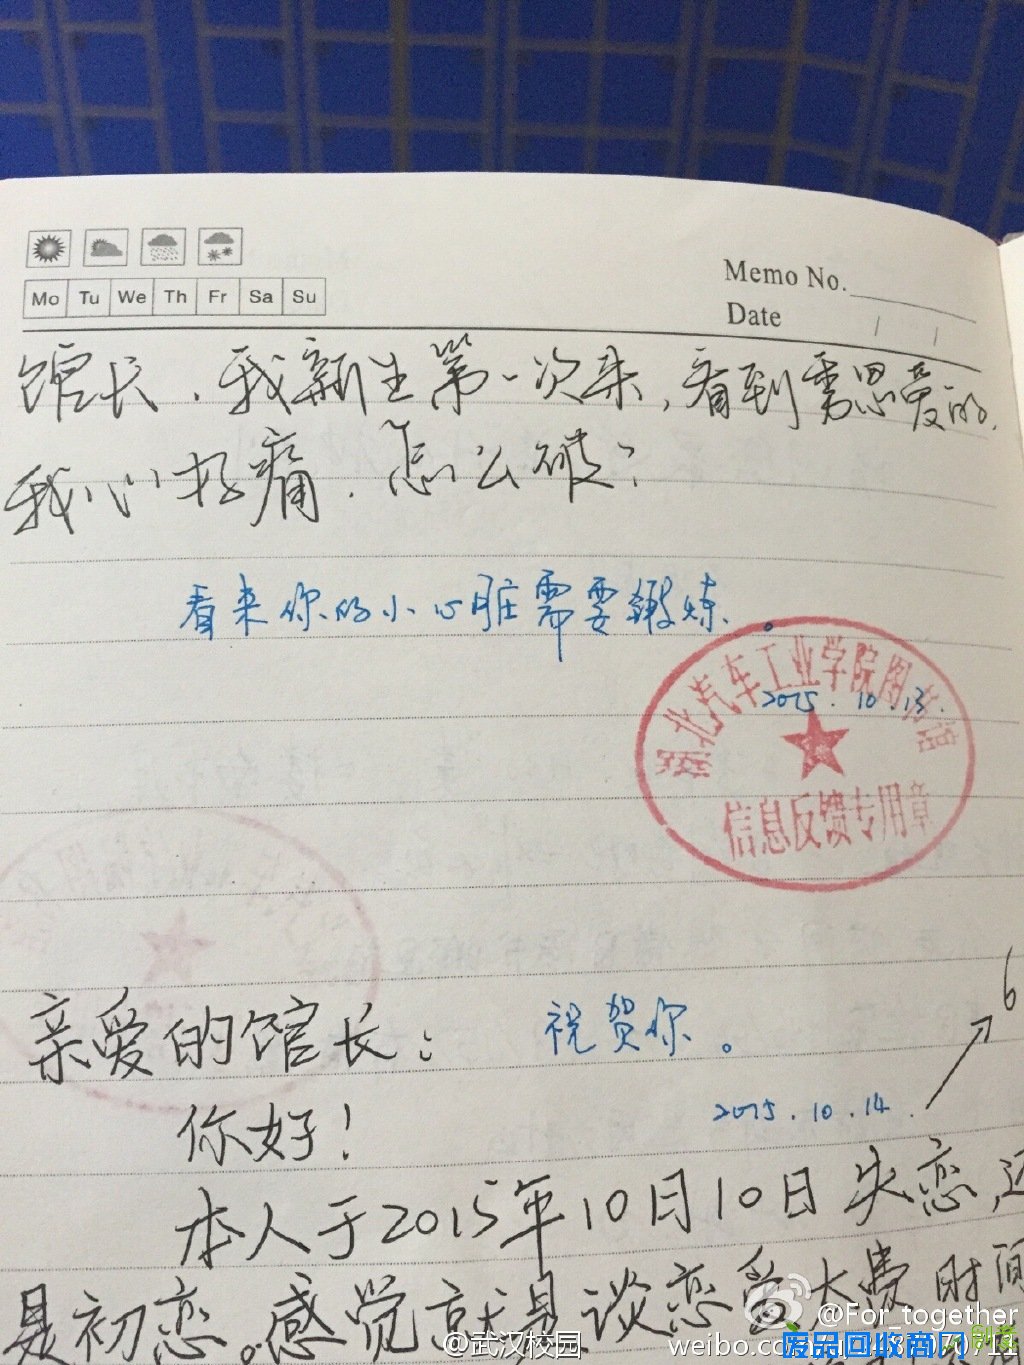 Mo Tu We Th Fr Sa Su
Memo No.
Date / /
馆长，我新生第一次来，看到秀恩爱的，
我心好痛，怎么破？
看来你的小心脏需要锻炼。
2015.10.13.
湖北汽车工业学院图书馆
信息反馈专用章
亲爱的馆长：
祝贺你。
6
你好！
2015.10.14.
本人于2015年10月10日失恋，还
是初恋。感觉就是谈恋爱太费时间
@For_together
@武汉校园
weibo.co
711
废品回收商网